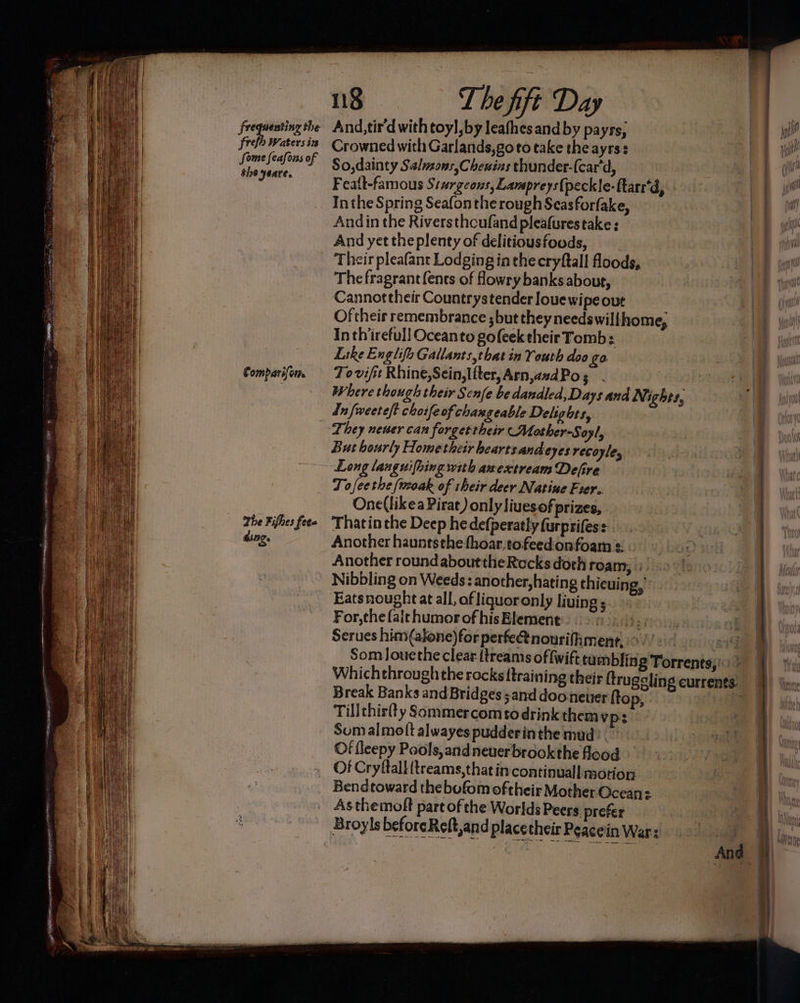 118 The fift Day
frequenting the
fresh Waters in
some seasons of
the yeare.
And,tir'd with toyl,by leashes and by payrs,
Crowned with Garlands,go to take the ayrs:
So,dainty Salmons,Chevins thunder-scar'd,
Feast-famous Sturgeons,Lampreys speckle-starr'd,
In the Spring Season the rough Seas forsake,
And in the Rivers thousand pleasures take:
And yet the plenty of delitious foods,
Their pleasant Lodging in the crystall floods,
The fragrant sents of flowry banks about,
Cannot their Countrys tender loue wipe out
Of their remembrance ; but they needs will home,
In th'irefull Ocean to go seek their Tomb:
Like English Gallants,that in Youth doo go
Comparison.
To visit Rhine,Sein,Ister,Arn,and Po;
Where though their Sense be dandled,Days and Nights,
In sweetest choise of changeable Delights,
They neuer can forget their Mother-Soyl,
But hourly Home their hearts and eyes recoyle,
Long languishing with an extream Desire
To see the smoak of their deer Natiue Fier.
One(like a Pirat) only liues of prizes,
The Fishes feeding.
That in the Deep he desperatly surprises:
Another haunts the shoar,to feed on foam:
Another round about the Rocks doth roam,
Nibbling on Weeds: another,hating thieuing,
Eats nought at all, of liquor only liuing;
For,the salt humor of his Element
Serues him(alone)for perfect nourishment,
Som loue the clear streams of swift tumbling Torrents,
Which through the rocks straining their struggling currents
Break Banks and Bridges ; and doo neuer stop,
Till thirsty Sommer com to drink them vp:
Som almost alwayes pudder in the mud
Of sleepy Pools,and neuer brook the flood
Of Crystall streams,that in continuall motion
Bend toward the bosom of their Mother Ocean:
As the most part of the Worlds Peers prefer
Broyls before Rest,and place their Peace in War:
And